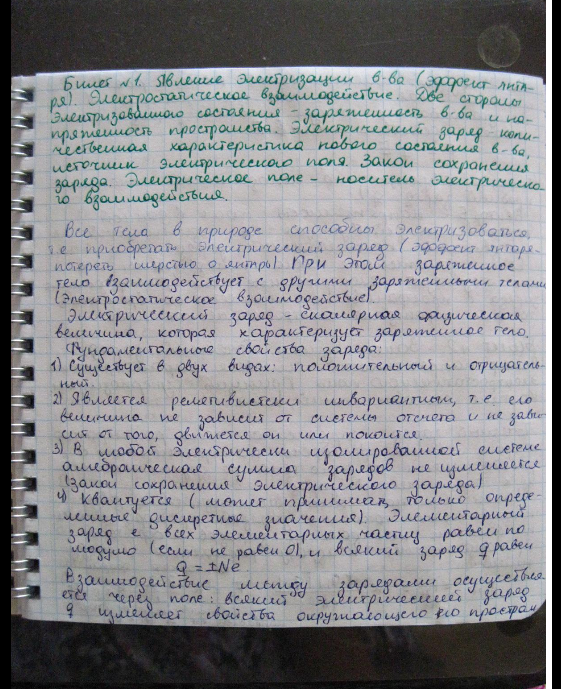 Билет №1. Явление электризации в-ва (эффект янта-
ря). Электростатическое взаимодействие. Две стороны
электризованного состояния - заряженность в-ва и на-
пряженность пространства. Электрический заряд - коли-
чественная характеристика нового состояния в-ва,
источник электрического поля. Закон сохранения
заряда. Электрическое поле - носитель электрическо-
го взаимодействия.
Все тела в природе способны электризоваться,
т.е. приобретать электрический заряд (эффект янтаря-
потереть шерстью о янтарь). При этом заряженное
тело взаимодействует с другими заряженными телами
(электростатическое взаимодействие).
Электрический заряд - скалярная физическая
величина, которая характеризует заряженное тело.
Фундаментальные свойства заряда:
1) Существует в двух видах: положительный и отрицатель-
ный.
2) Является релятивистски инвариантным, т.е. его
величина не зависит от системы отсчета и не зави-
сит от того, движется он или покоится.
3) В любой электрически изолированной системе
алгебраическая сумма зарядов не изменяется
(закон сохранения электрического заряда)
4) Квантуется (может принимать только опреде-
ленные дискретные значения). Элементарный
заряд e всех элементарных частиц равен по
модулю (если не равен 0), и всякий заряд q равен
q = ±Ne
Взаимодействие между зарядами осуществля-
ется через поле: всякий электрический заряд
q изменяет свойства окружающего его простран